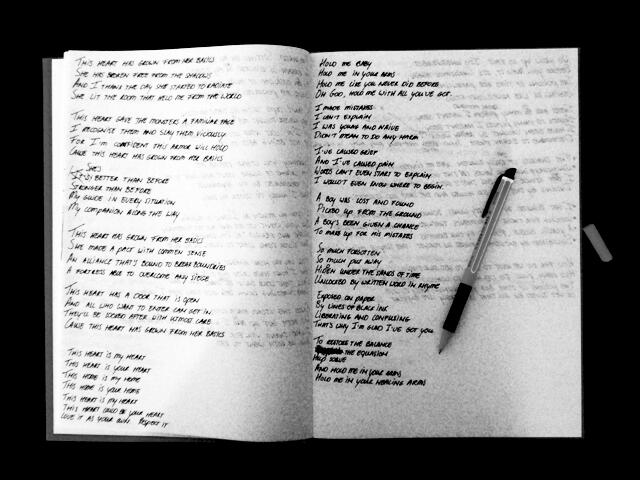 This heart has grown from her basics
She has broken free from the shadows
And I thank the day she started to radiate
She lit the room that held me from the world
This heart gave the monsters a familiar face
I recognise them and slay them viciously
For I'm confident this armor will hold
Cause this heart has grown from her basics
She's
(It's) better than before
Stronger than before
My guide in every situation
My companion along the way
This heart has grown from her basics
She made a pact with common sense
An alliance that's bound to break boundries
A fortress able to overcome any siege
This heart has a door that is open
And all who want to enter can get in
They'll be looked after with utmost care
Cause this heart has grown from her basics
This heart is my heart
This heart is your heart
This home is my home
This home is your home
This heart is my heart
This heart could be your heart
Love it as your own Respect it
Hold me baby
Hold me in your arms
Hold me like you never did before
Oh God, hold me with all you've got.
I made mistakes
I can't explain
I was young and naïve
Didn't mean to do any harm
I've caused grief
And I've caused pain
Words can't even start to explain
I would't even know where to begin
A boy was lost and found
Picked up from the ground
A boy's been given a chance
To make up for his mistakes
So much forgotten
So much put away
Hiden under the sands of time
Unlocked by written word in rhyme
Exposed on paper
By lines of black ink
Liberating and confusing
That's why I'm glad I've got you
To restore the balance
the equasion
Help solve
And hold me in your arms
Hold me in your healing arms